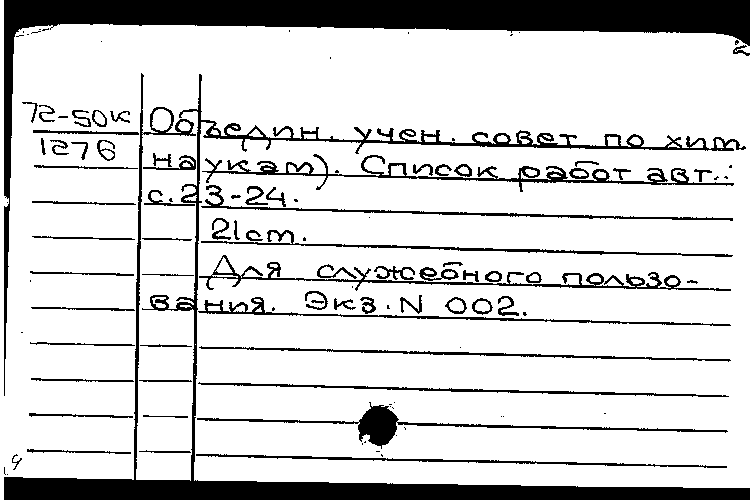 2
72-50к
1276
Объедин. учен. совет по хим.
наукам). Список работ авт.:
с.23-24.
21 cm.
Для служебного пользо-
вания. Экз. N 002.